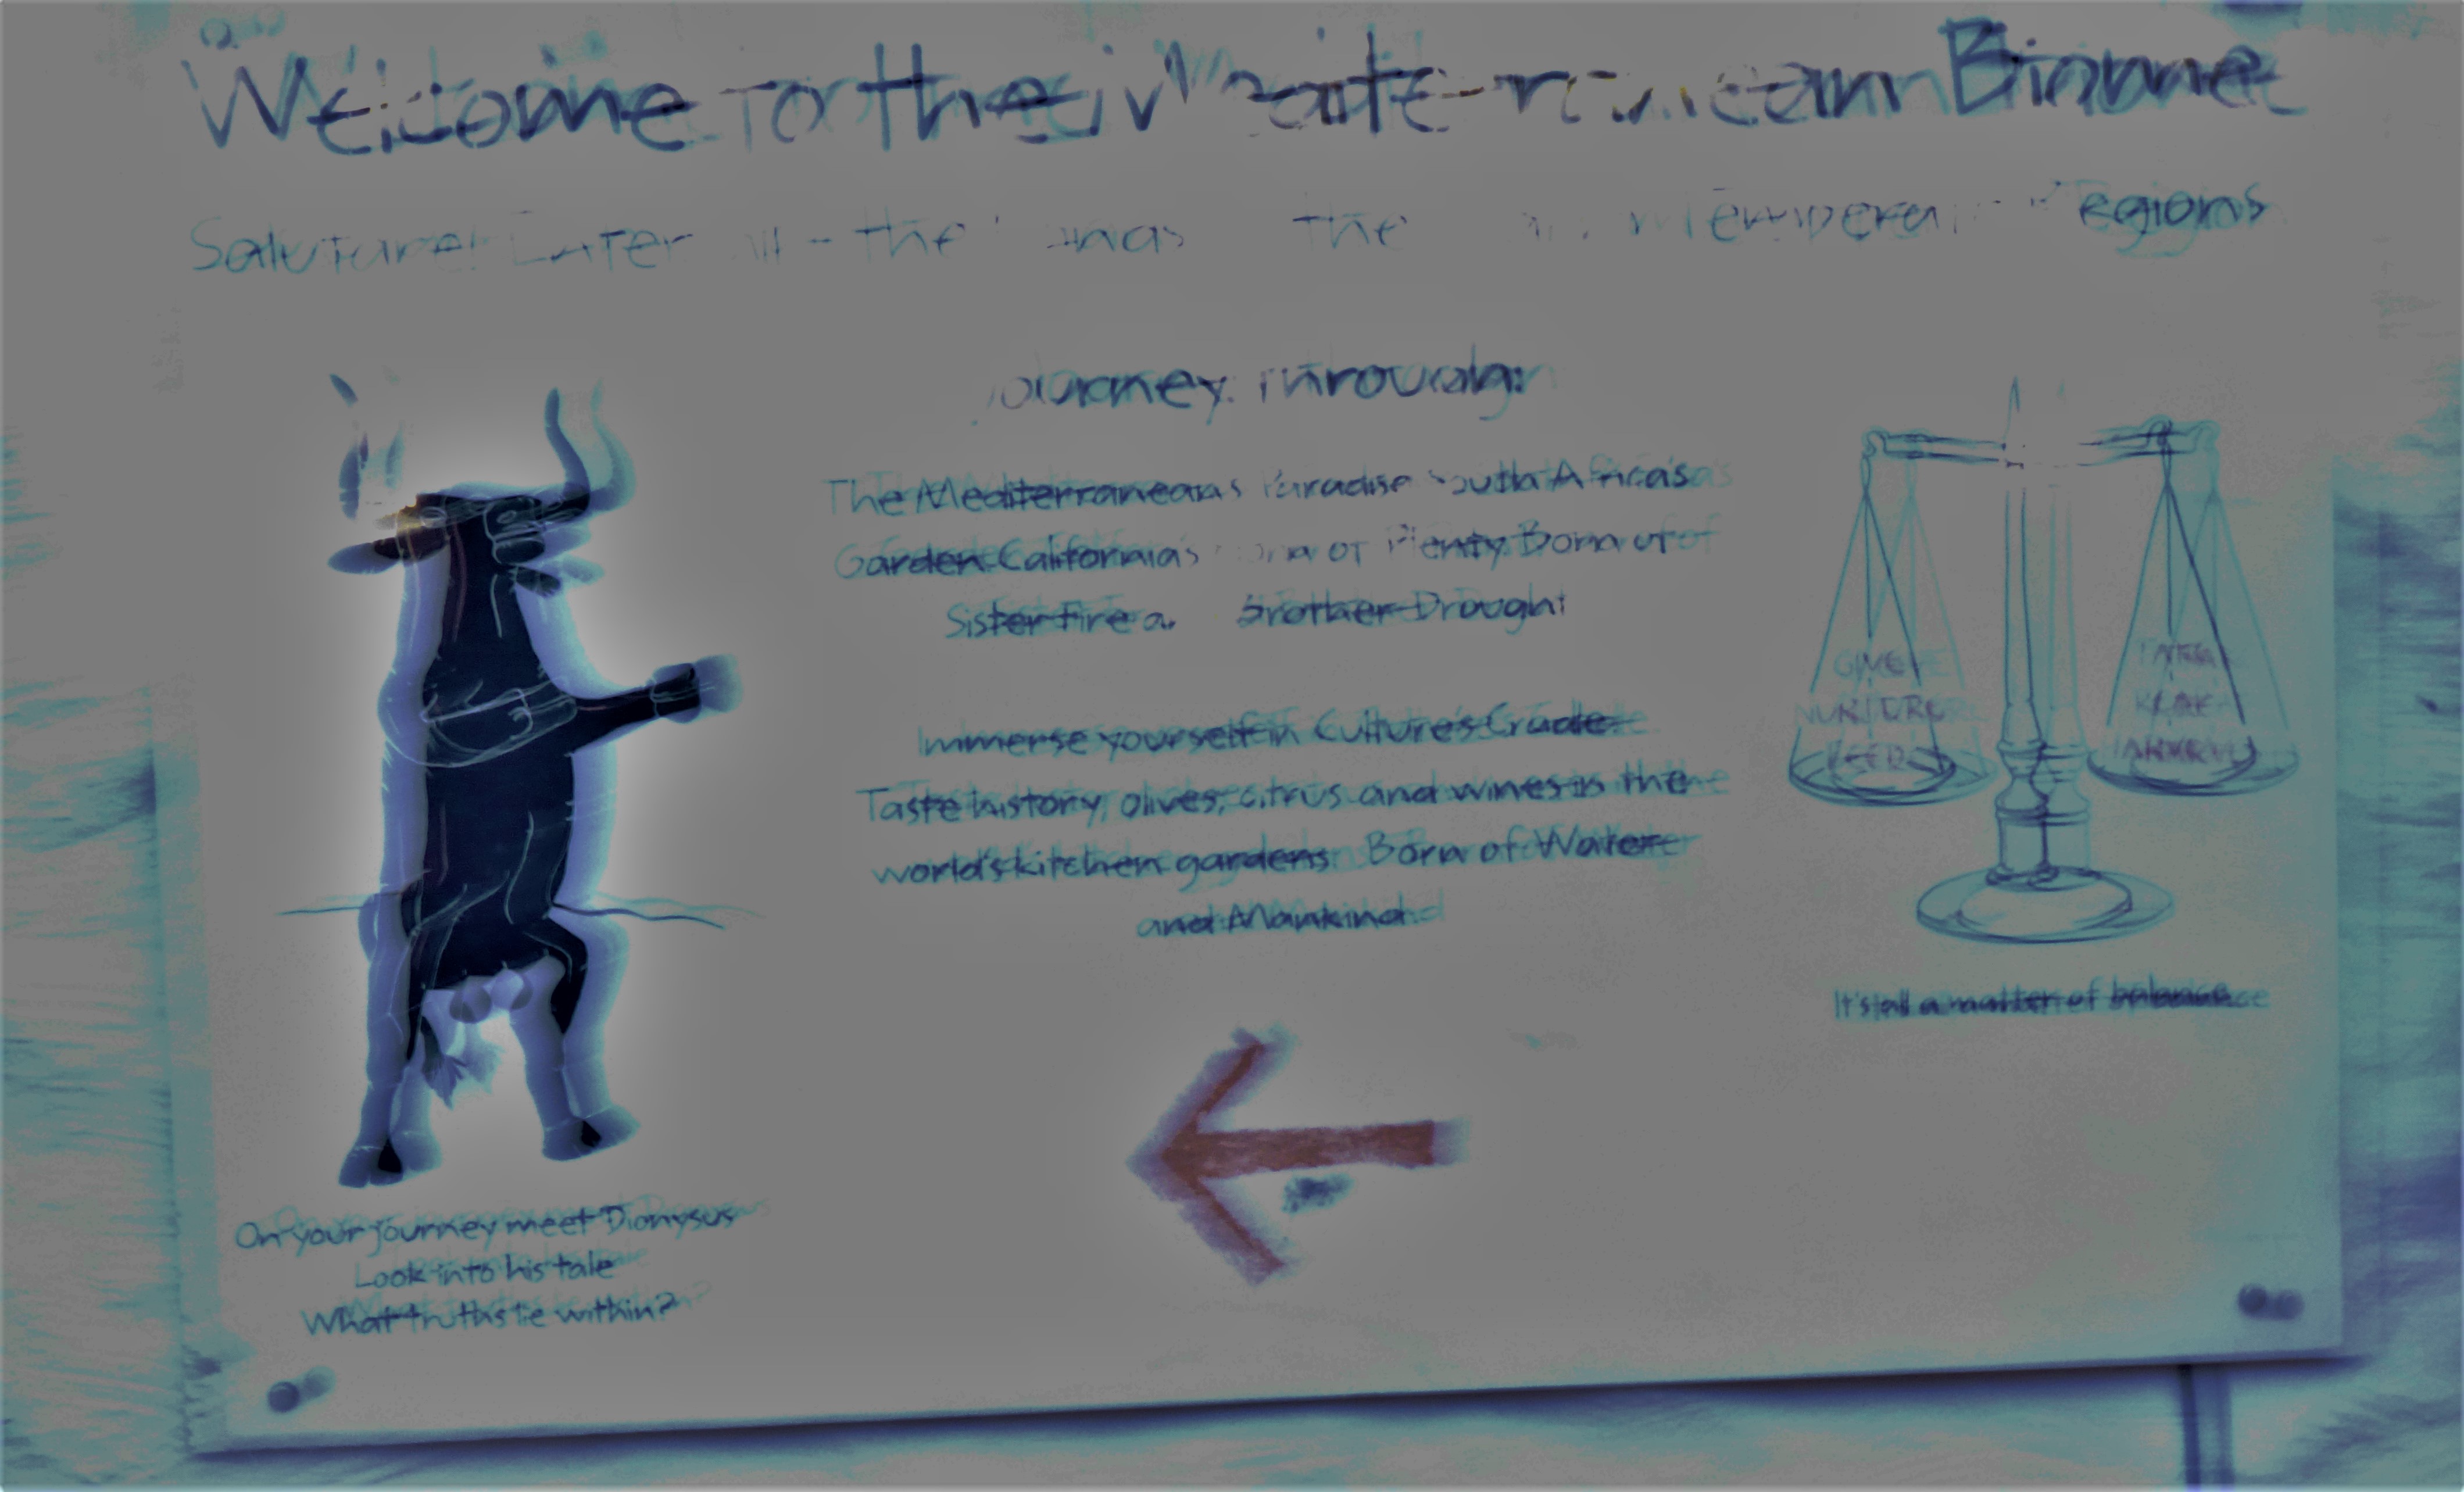 Welcome to the Mediterranean Biome
the the Temperate Regions
Journey Through:
The Mediterranean's Paradise South Africa's
Garden California's of Plenty Born of
Sister Fire Brother Drought
Immerse yourself in Culture's Cradle
Taste history, olives, citrus and wines in the
world's kitchen gardens Born of Water
and Mankind
GIVE
NURTURE
FEED
TAKE
It's all a matter of balance
On your journey meet Dionysus
Look into his tale
What truths lie within?